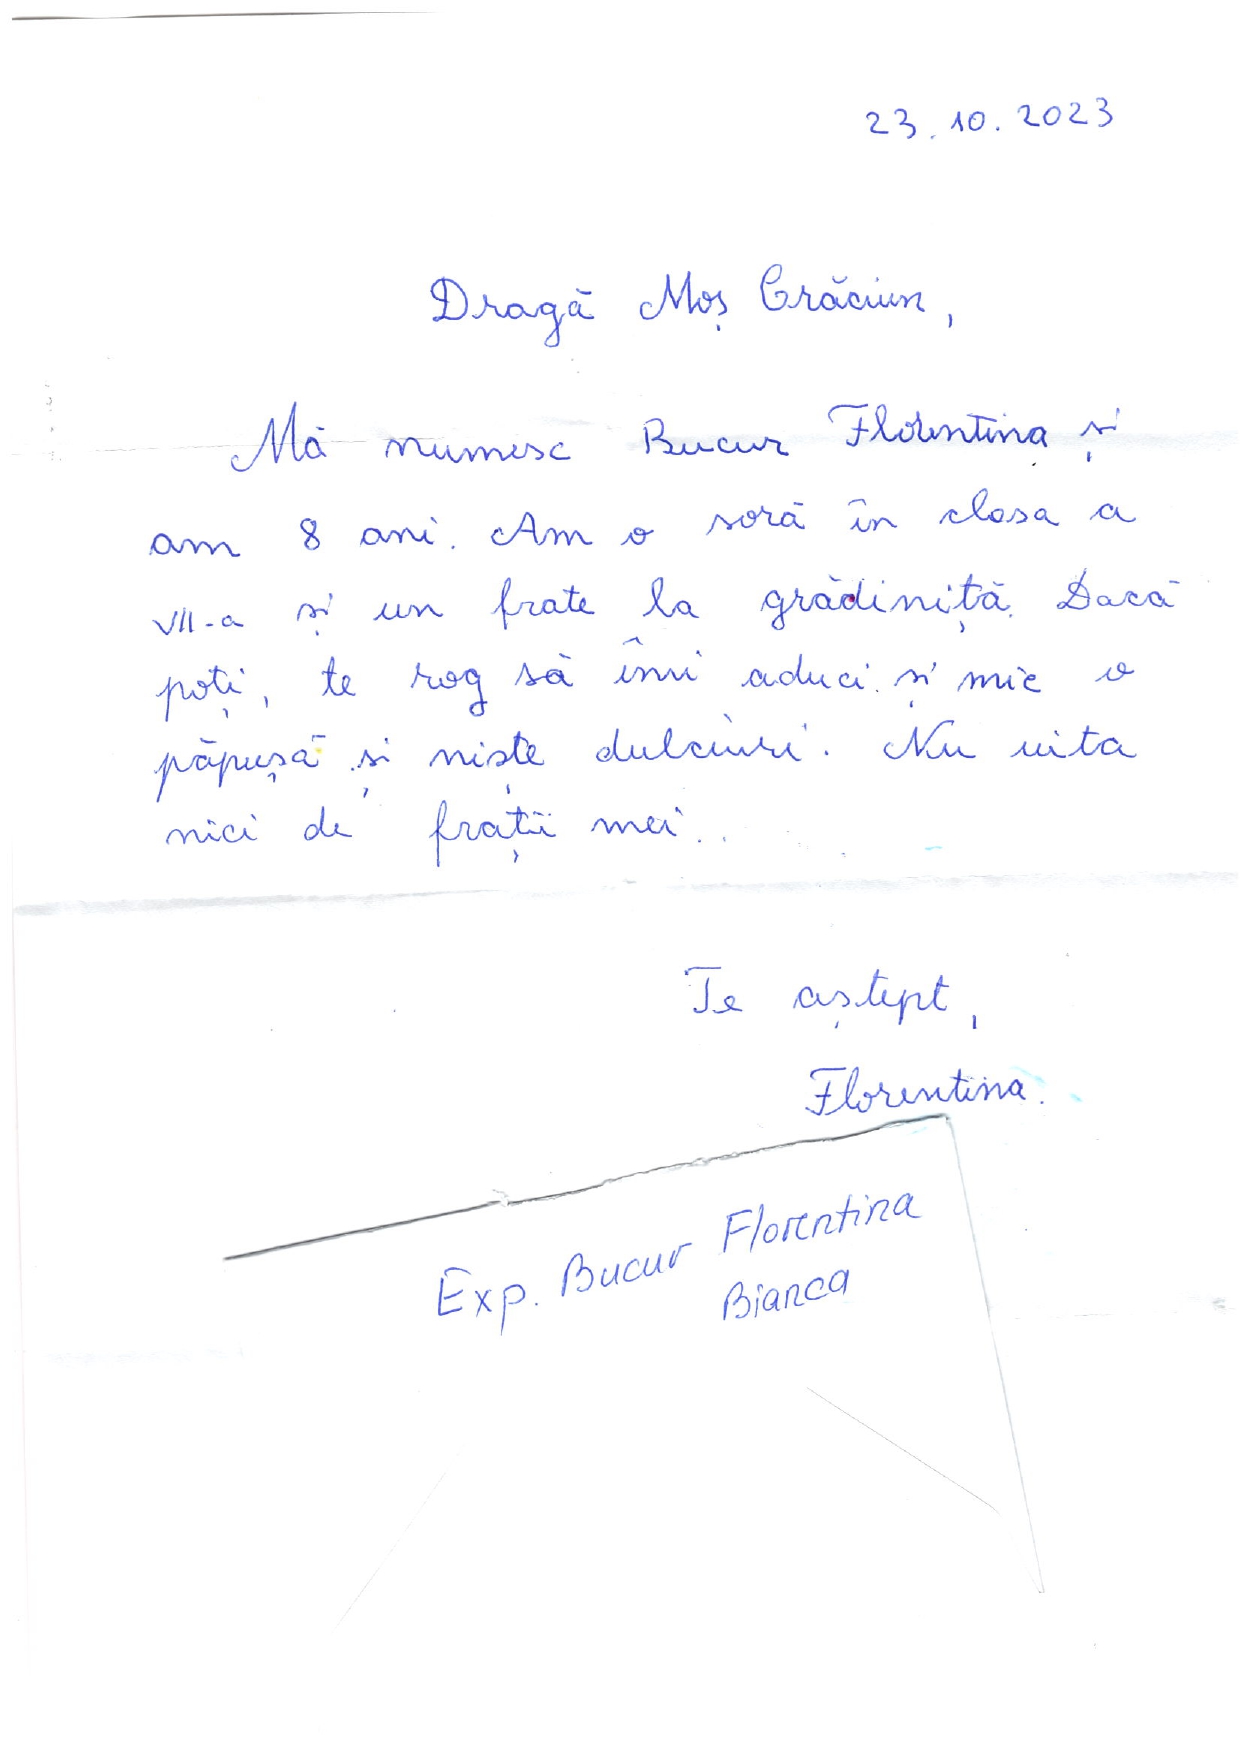 23.10.2023
Dragă Moș Crăciun,
Mă numesc Bucur Florentina și
am 8 ani. Am o soră în clasa a
VII-a și un frate la grădiniță. Dacă
poți, te rog să îmi aduci și mie o
păpușă și niște dulciuri. Nu uita
nici de frații mei.
Te aștept,
Florentina.
Exp. Bucur Florentina
Bianca